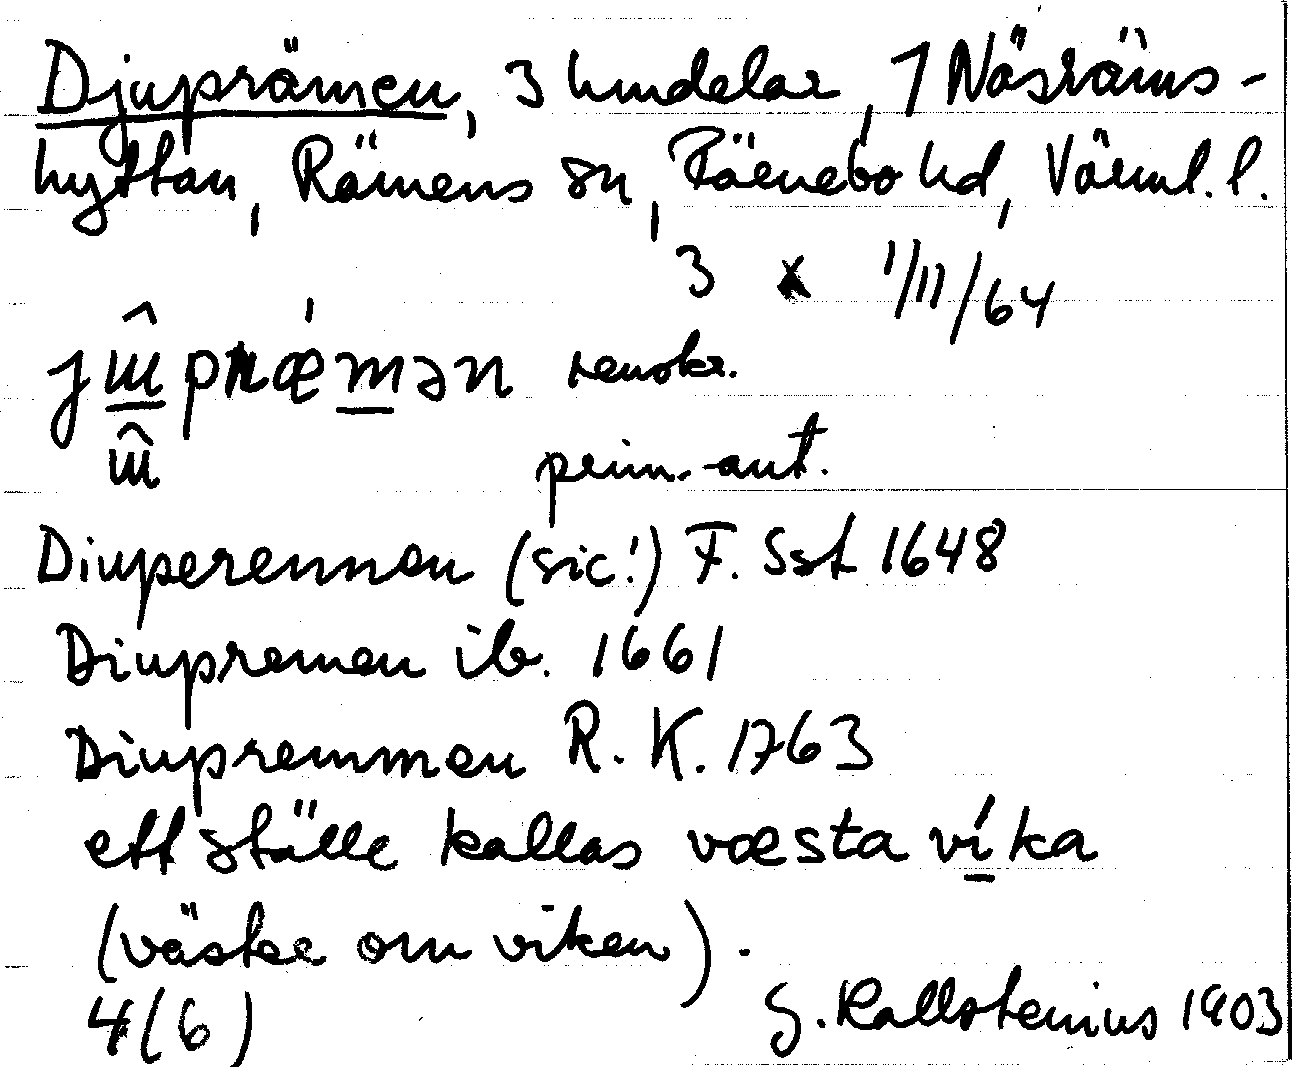 Djuprämen, 3 hmdelar, 1 Näsräms-
hyttan, Rämens sn, Färnebo hd, Värml. l.
3 x 1/11/64
senokr.
prim.-aut.
Diuperennen (sic!) F. Sst 1648
Diupremen ib. 1661
Diupremmen R. K. 1763
ett ställe kallas væsta víka
(väster om viken).
4(6) G. Kallstenius 1903